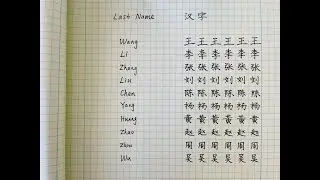 Last Name 汉字
Wang 王 王 王 王 王 王
Li 李 李 李 李 李 李
Zhang 张 张 张 张 张 张
Liu 刘 刘 刘 刘 刘 刘
Chen 陈 陈 陈 陈 陈 陈
Yang 杨 杨 杨 杨 杨 杨
Huang 黄 黄 黄 黄 黄 黄
Zhao 赵 赵 赵 赵 赵 赵
Zhou 周 周 周 周 周 周
Wu 吴 吴 吴 吴 吴 吴